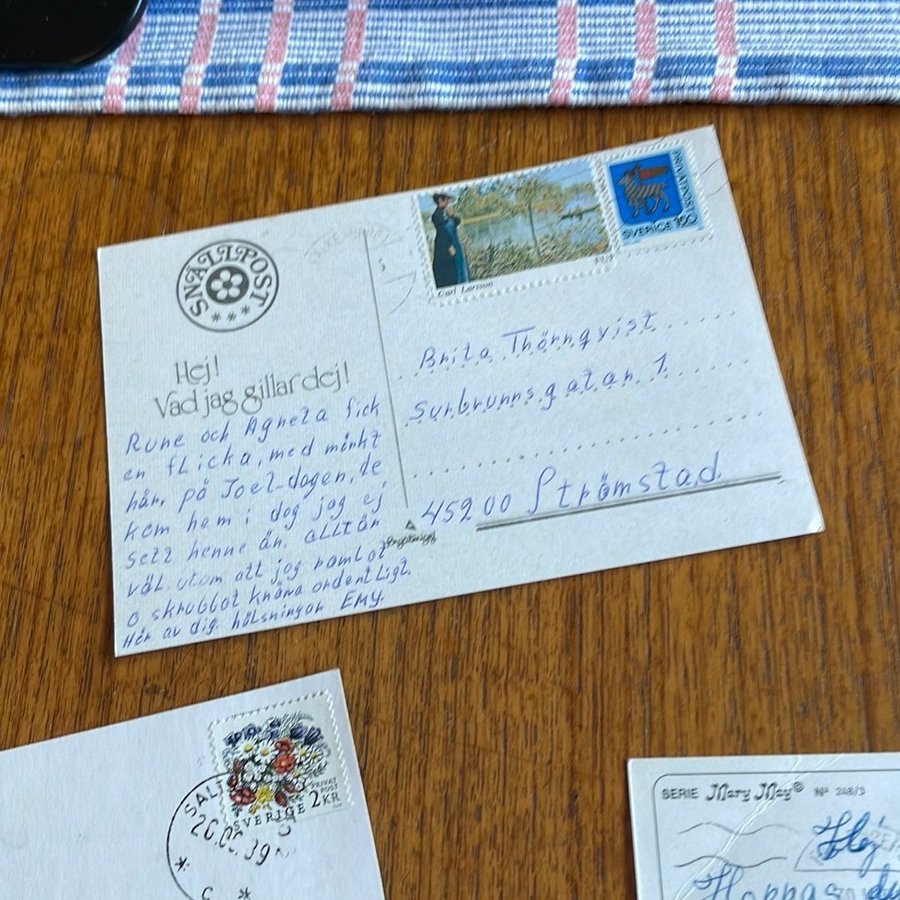 SNÄLLPOST
Hej!
Vad jag gillar dej!
Rune och Agneta fick
en flicka, med mörkt
hår, på Joel-dagen, de
kom hem i dag jag ej
sett henne än. allt är
väl. utom att jag ramlat
o skrubbat knäna ordentligt.
Hör av dig. hälsningar Emy.
Carl Larsson
PRIVATPOST
SVERIGE 180
Brita Thörnqvist
Surbrunnsgatan 1
45200 Strömstad
SALT
PRIVAT
POST
SVERIGE 2KR
SERIE Mary May® Nº 248/3
Hej
Hoppas du